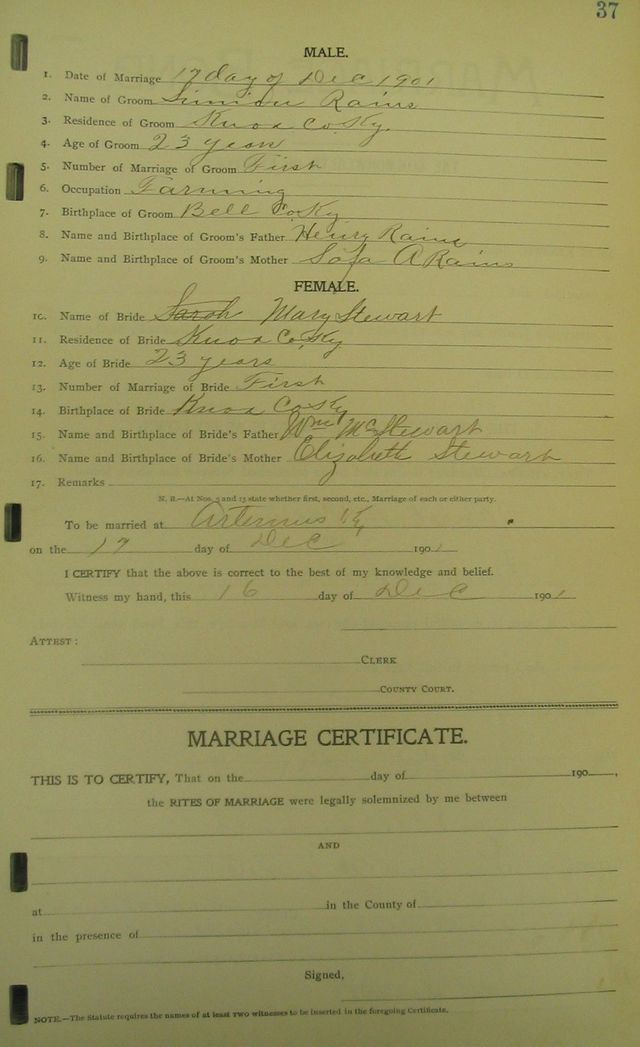 37
MALE.
1. Date of Marriage 17 day of Dec 1901
2. Name of Groom Simion Rains
3. Residence of Groom Knox Co. Ky.
4. Age of Groom 23 years
5. Number of Marriage of Groom First
6. Occupation Farming
7. Birthplace of Groom Bell Co Ky
8. Name and Birthplace of Groom's Father Henry Rains
9. Name and Birthplace of Groom's Mother A Rains
FEMALE.
10. Name of Bride Sarah Mary Stewart
11. Residence of Bride Knox Co Ky
12. Age of Bride 23 years
13. Number of Marriage of Bride First
14. Birthplace of Bride Knox Co Ky
15. Name and Birthplace of Bride's Father Wm Mc Stewart
16. Name and Birthplace of Bride's Mother Elizabeth Stewart
17. Remarks
N. B.—At Nos. 5 and 13 state whether first, second, etc., Marriage of each or either party.
To be married at Artemus Ky
on the 17 day of Dec 1901
I CERTIFY that the above is correct to the best of my knowledge and belief.
Witness my hand, this 16 day of Dec 1901
ATTEST:
CLERK
COUNTY COURT.
MARRIAGE CERTIFICATE.
THIS IS TO CERTIFY, That on the day of 190 ,
the RITES OF MARRIAGE were legally solemnized by me between
AND
at in the County of
in the presence of
Signed,
NOTE.—The Statute requires the names of at least two witnesses to be inserted in the foregoing Certificate.